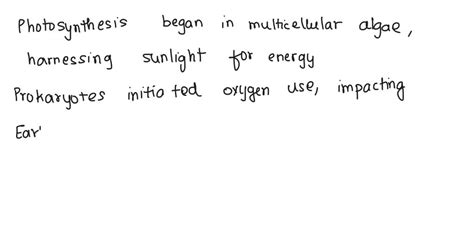 Photosynthesis began in multicellular algae,
harnessing sunlight for energy
Prokaryotes initiated oxygen use, impacting
Ear